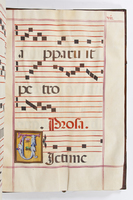 apparuit
petro
Prosa.
Victime